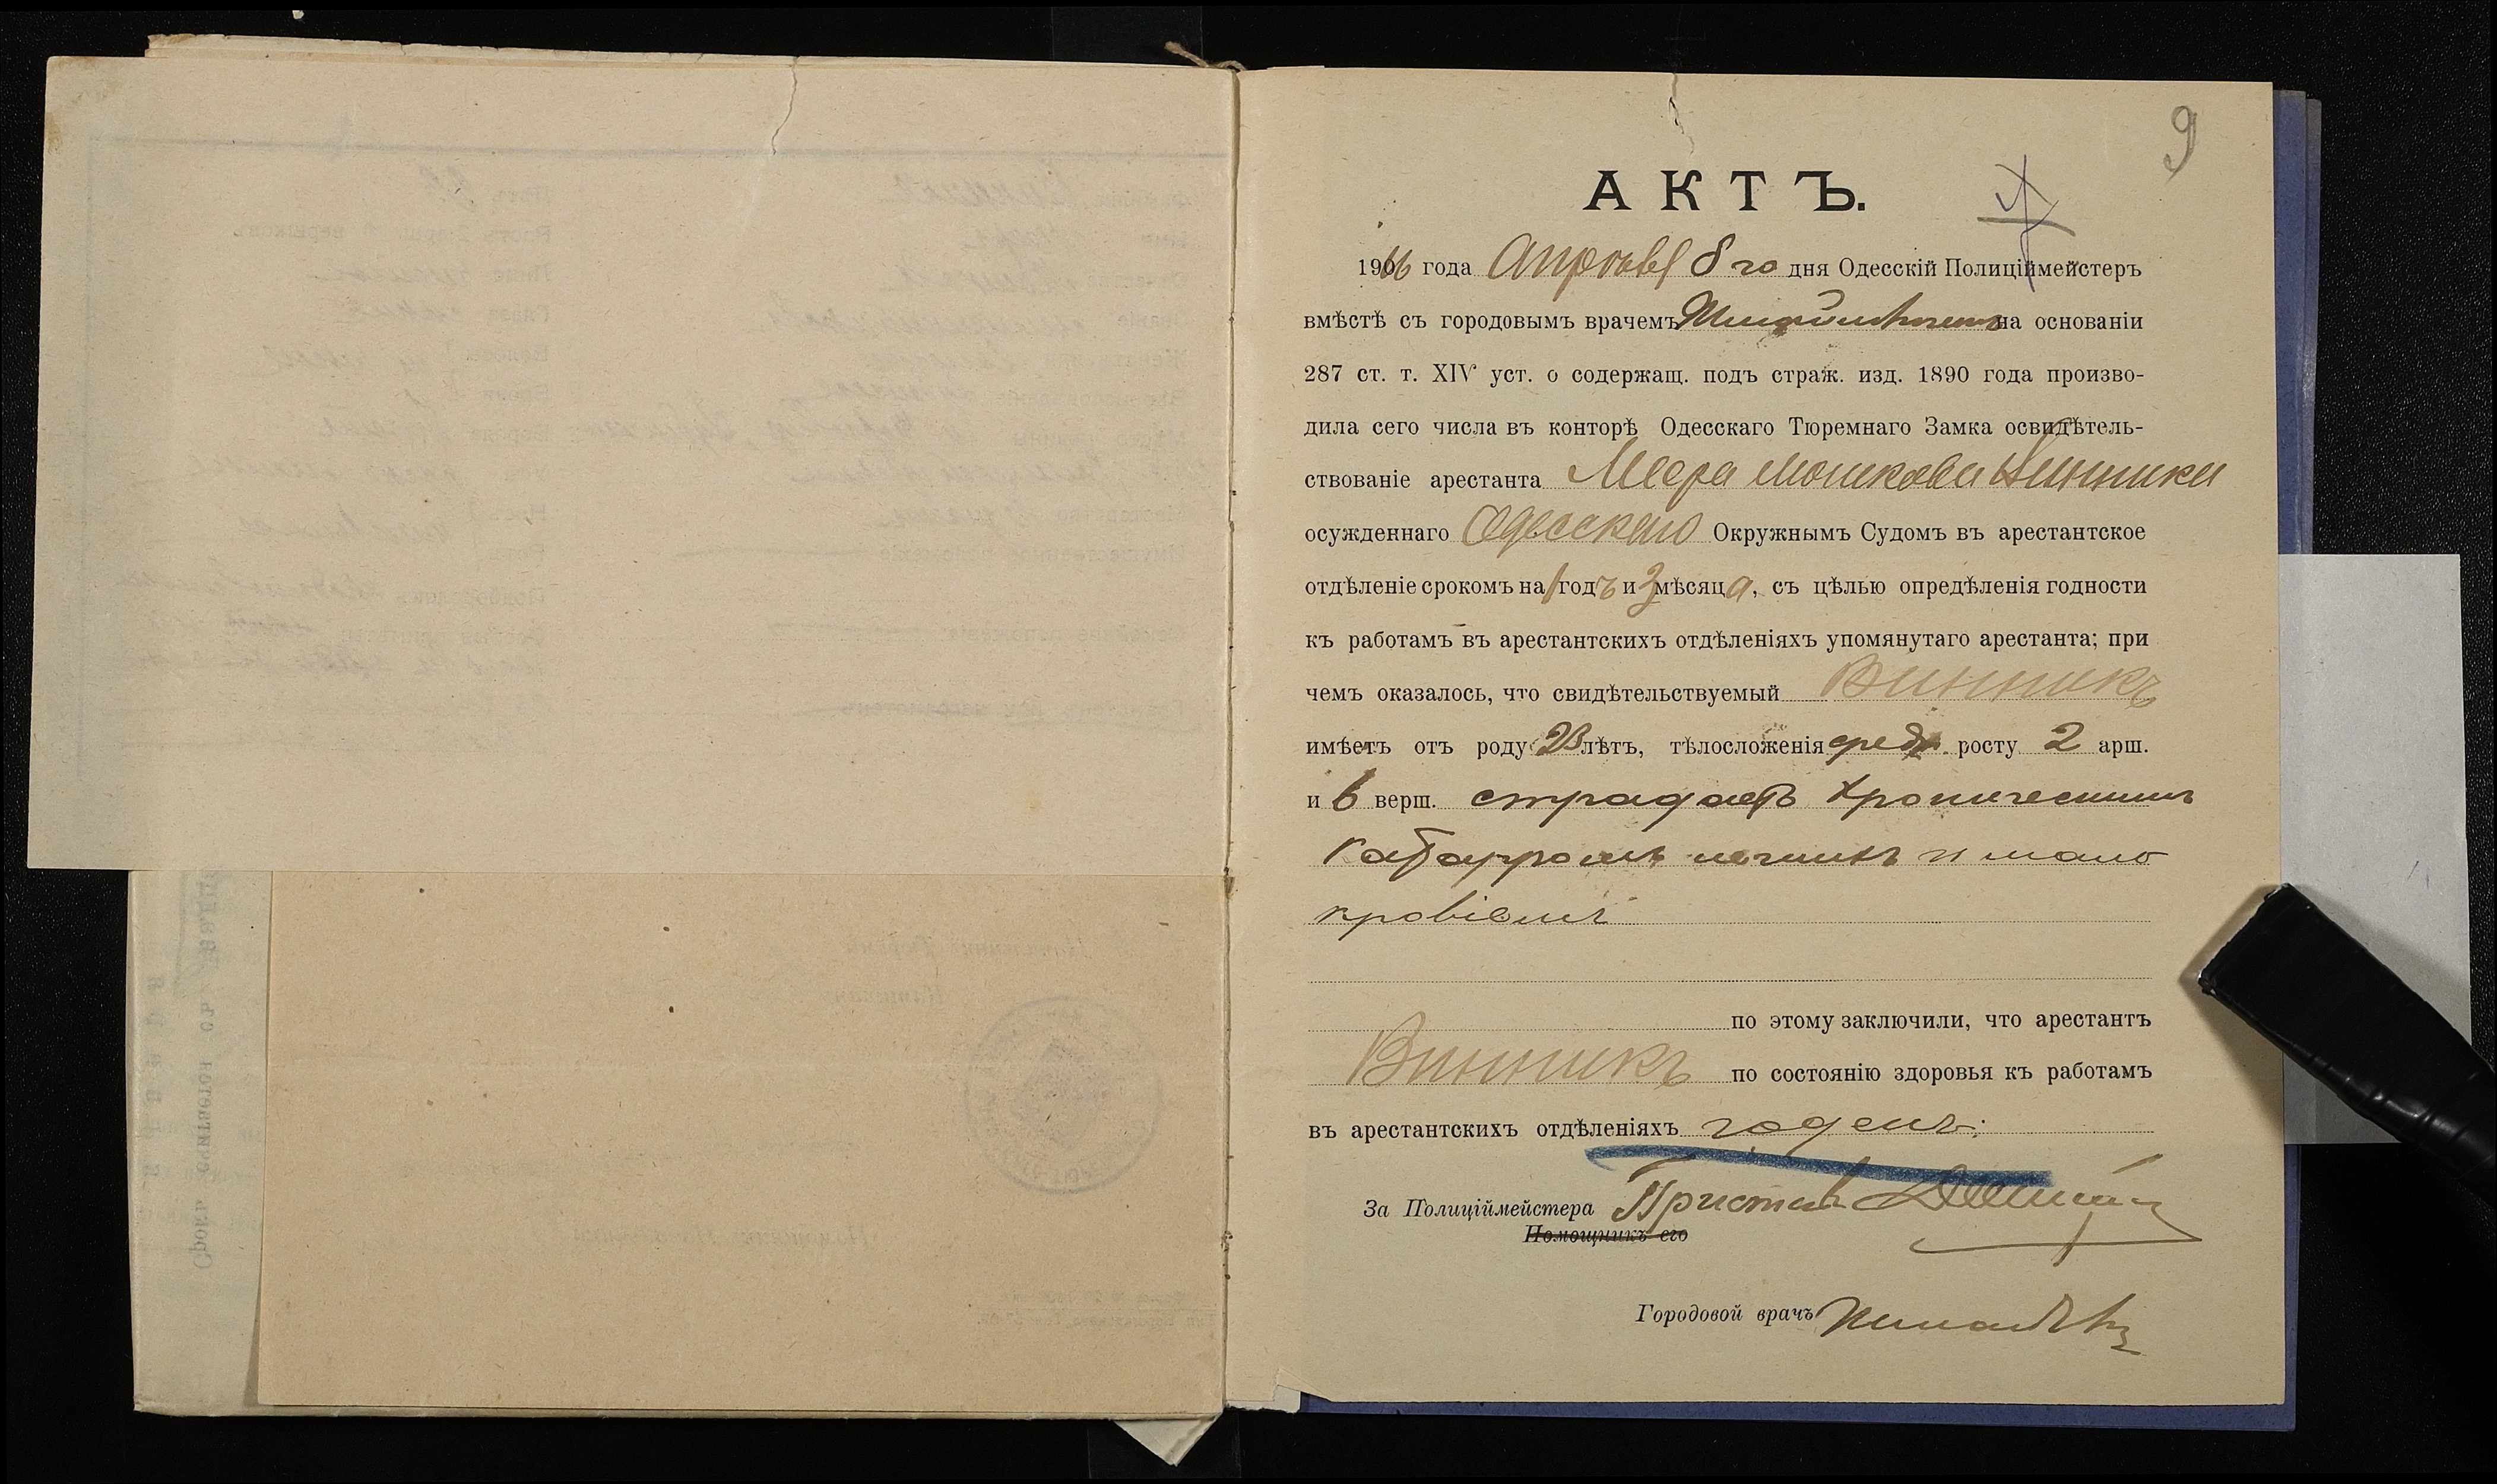 9
АКТЪ.
1906 года Апреля 8 го дня Одесскій Полиціймейстеръ
вмѣстѣ съ городовымъ врачемъ на основаніи
287 ст. т. XIV уст. о содержащ. подъ страж. изд. 1890 года произво-
дила сего числа въ конторѣ Одесскаго Тюремнаго Замка освидѣтель-
ствованіе арестанта Меера Мошкова Винника
осужденнаго Одесскимъ Окружнымъ Судомъ въ арестантское
отдѣленіе срокомъ на 1 годъ и 3 мѣсяца, съ цѣлью опредѣленія годности
къ работамъ въ арестантскихъ отдѣленіяхъ упомянутаго арестанта; при
чемъ оказалось, что свидѣтельствуемый Винникъ
имѣетъ отъ роду 23 лѣтъ, тѣлосложенія средн. росту 2 арш.
и 6 верш. страдаетъ хроническимъ
катарромъ легкихъ и мало
кровіемъ
по этому заключили, что арестантъ
Винникъ по состоянію здоровья къ работамъ
въ арестантскихъ отдѣленіяхъ годенъ.
За Полиціймейстера Приставъ
Помощникъ его
Городовой врачъ